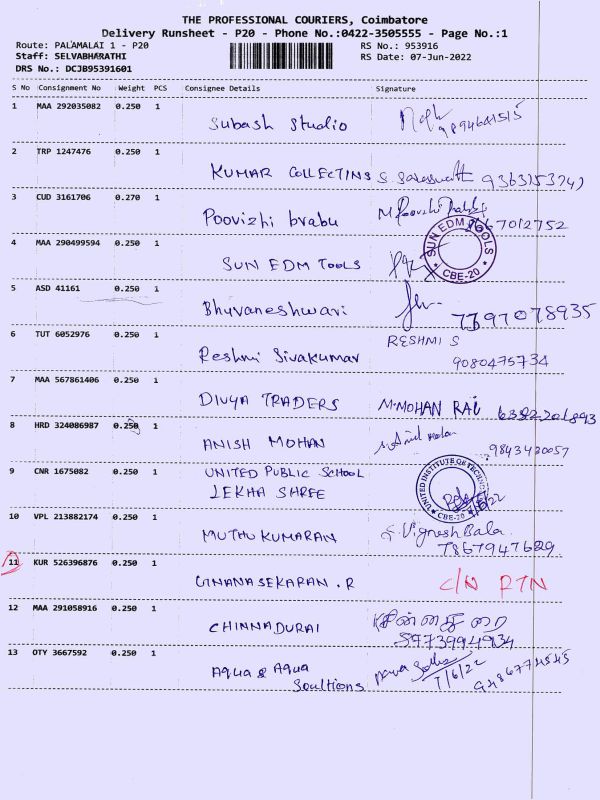 THE PROFESSIONAL COURIERS, Coimbatore
Delivery Runsheet - P20 - Phone No.:0422-3505555 - Page No.:1
Route: PALAMALAI 1 - P20
RS No.: 953916
Staff: SELVABHARATHI
RS Date: 07-Jun-2022
DRS No.: DCJB95391601
S No Consignment No Weight PCS Consignee Details Signature
1 MAA 292035082 0.250 1
Subash Studio
9894641515
2 TRP 1247476 0.250 1
KUMAR COLLECTINS
3 CUD 3161706 0.270 1
Poovizhi brabu
4 MAA 290499594 0.250 1
SUN EDM TOOLS
SUN EDM TOOLS
CBE-20
5 ASD 41161 0.250 1
Bhuvaneshwari
7797078935
RESHMI S
6 TUT 6052976 0.250 1
Reshmi Sivakumar
9080475734
7 MAA 567861406 0.250 1
DIVYA TRADERS M.MOHAN RAJ
8 HRD 324086987 0.250 1
ANISH MOHAN
9843420057
9 CNR 1675082 0.250 1
UNITED PUBLIC SCHOOL
LEKHA SHREE
UNITED INSTITUTE OF TECHNO
CBE-20
10 VPL 213882174 0.250 1
MUTHU KUMARAN
S. Vignesh Bala
7867947629
11 KUR 526396876 0.250 1
GNANASEKARAN . R C/N RTN
12 MAA 291058916 0.250 1
CHINNADURAI
சின்னதுரை
13 OTY 3667592 0.250 1
Aqua & Aqua
Soultions
7/6/22
9486774545